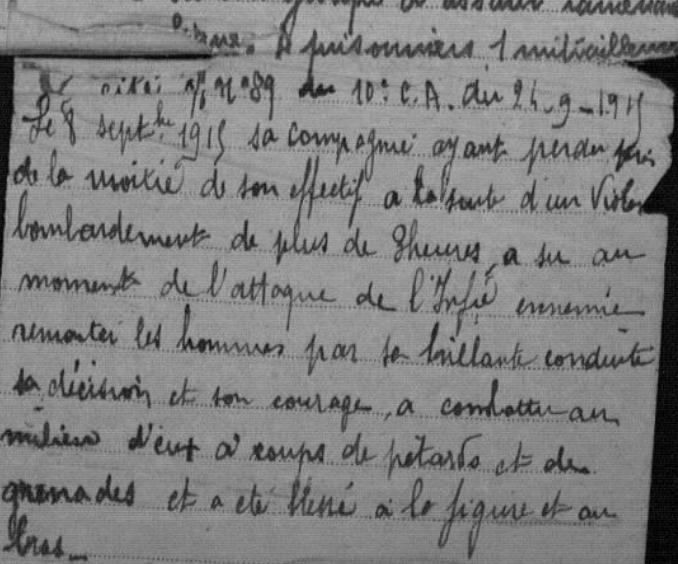 et assurer
prisonniers 1 mitrailleuse
cité: N°89 du 10e C.A. du 24-9-1915
Le 8 septbre 1915 sa compagnie ayant perdu près
de la moitié de son effectif a la suite d'un Violen
bombardement de plus de 3heures, a su au
moment de l'attaque de l'Infie ennemie
remonter les hommes par sa brillante conduite
sa décision et son courage, a combattu au
milieu d'eux à coups de pétards et de
grenades et a été blessé à la figure et au
bras_